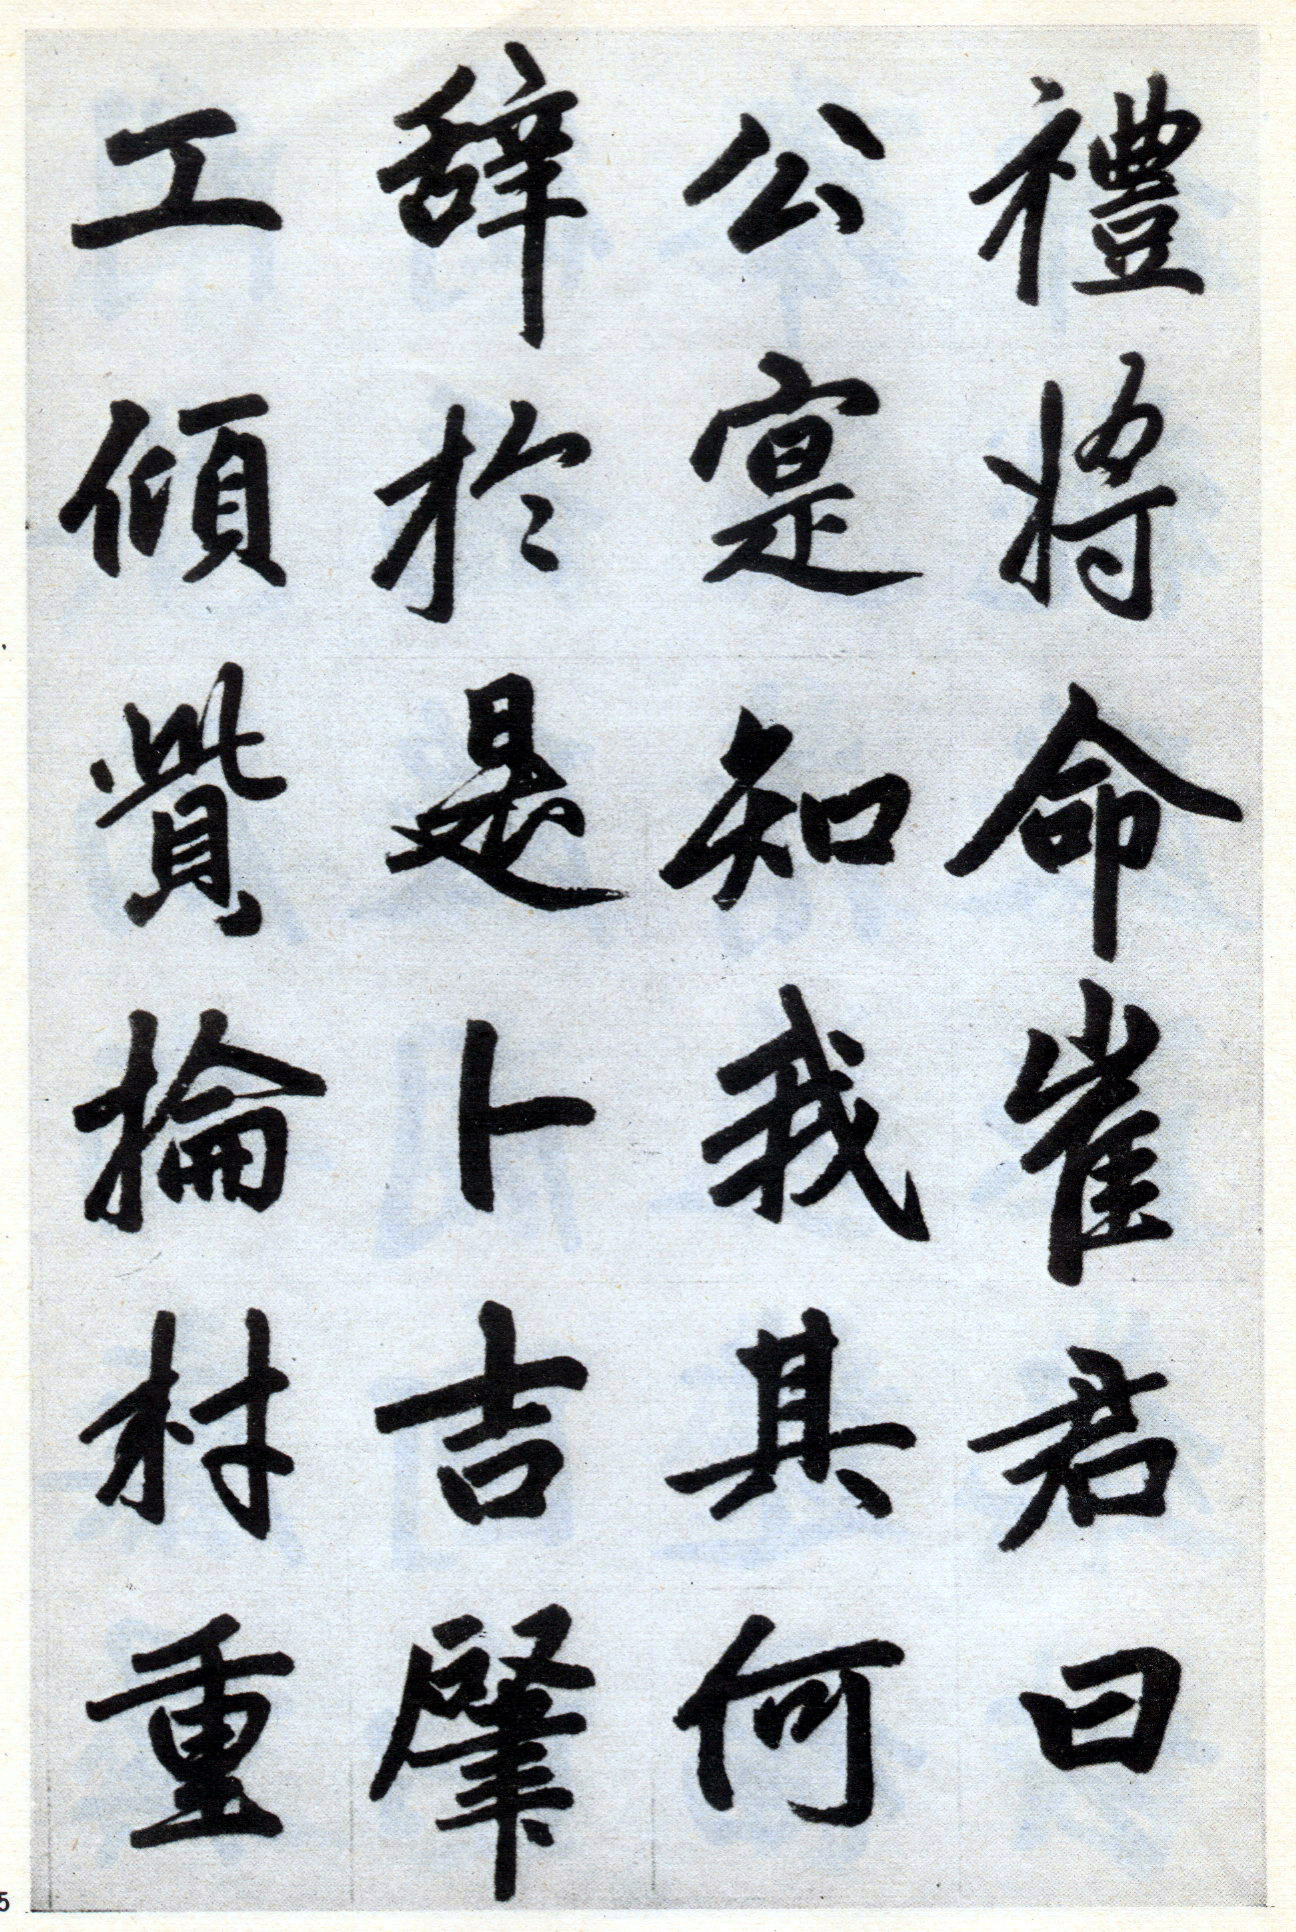 禮將命崔君曰
公寔知我其何
辞於是卜吉肇
工傾貲掄材重
5